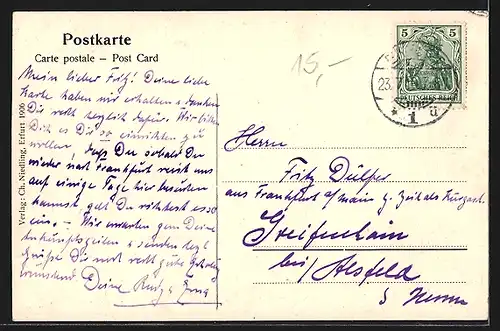 Postkarte
Carte postale – Post Card
15,-
5 5
DEUTSCHES REICH
23.
* 1 ü
Verlag: Ch. Niedling, Erfurt 1906
Mein lieber Fritz! Deine liebe
Karte haben wir erhalten u. danken
Dir recht herzlich dafür. Wir bitten
Dich es Dir so einrichten zu
wollen, dass Du sobald Du
wieder nach Frankfurt reist uns
auf einige Tage hier besuchen
kannst,
ein. – Wir erwarten gern Deine
Ankunftszeilen u. senden herzl
Grüße Dir noch recht gute Erholung
wünschend. Deine
Herrn
Fritz
aus Frankfurt a/main z. Zeit als Kurgast
Greifenhain
bei/ Alsfeld
Hessen